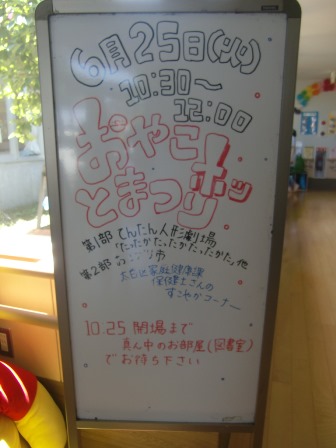 6月25日(火)
10:30～
12:00
おやこ
ホッ
とまつり
第1部 てんたん人形劇場
「たったかた、たったかたったかた」他
第2部 市
家庭健康課
保健士さんの
すこやかコーナー
10.25 開場まで
真ん中のお部屋(図書室)
でお待ち下さい